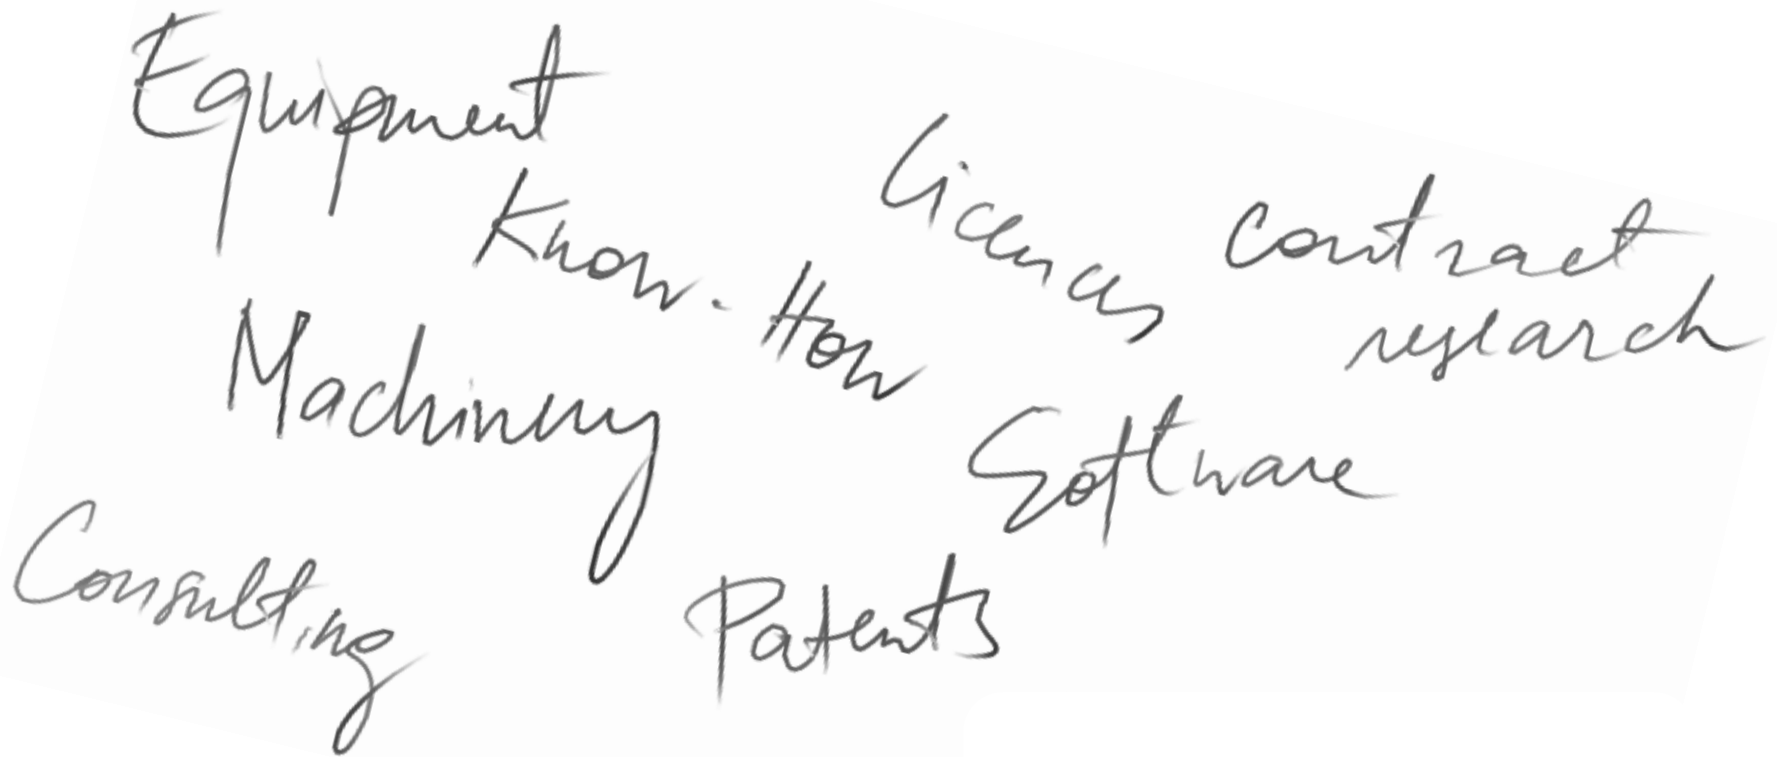 Equipment
Licences
contract
research
Know-How
Machinery
Software
Consulting
Patents